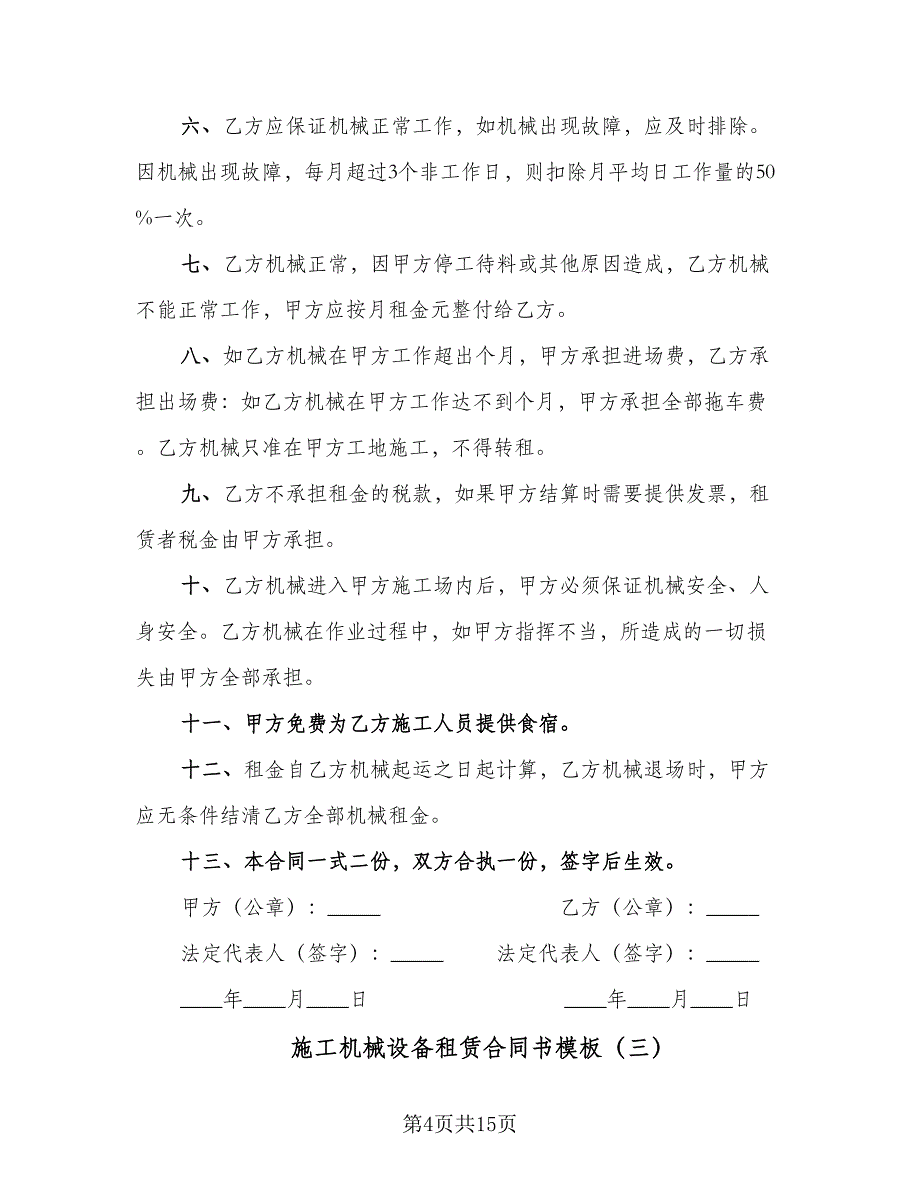 六、乙方应保证机械正常工作，如机械出现故障，应及时排除。
因机械出现故障，每月超过3个非工作日，则扣除月平均日工作量的50
%一次。
七、乙方机械正常，因甲方停工待料或其他原因造成，乙方机械
不能正常工作，甲方应按月租金元整付给乙方。
八、如乙方机械在甲方工作超出个月，甲方承担进场费，乙方承
担出场费：如乙方机械在甲方工作达不到个月，甲方承担全部拖车费
。乙方机械只准在甲方工地施工，不得转租。
九、乙方不承担租金的税款，如果甲方结算时需要提供发票，租
赁者税金由甲方承担。
十、乙方机械进入甲方施工场内后，甲方必须保证机械安全、人
身安全。乙方机械在作业过程中，如甲方指挥不当，所造成的一切损
失由甲方全部承担。
十一、甲方免费为乙方施工人员提供食宿。
十二、租金自乙方机械起运之日起计算，乙方机械退场时，甲方
应无条件结清乙方全部机械租金。
十三、本合同一式二份，双方合执一份，签字后生效。
甲方（公章）：_____ 乙方（公章）：_____
法定代表人（签字）：_____ 法定代表人（签字）：_____
____年____月____日 ____年____月____日
施工机械设备租赁合同书模板（三）
第4页共15页